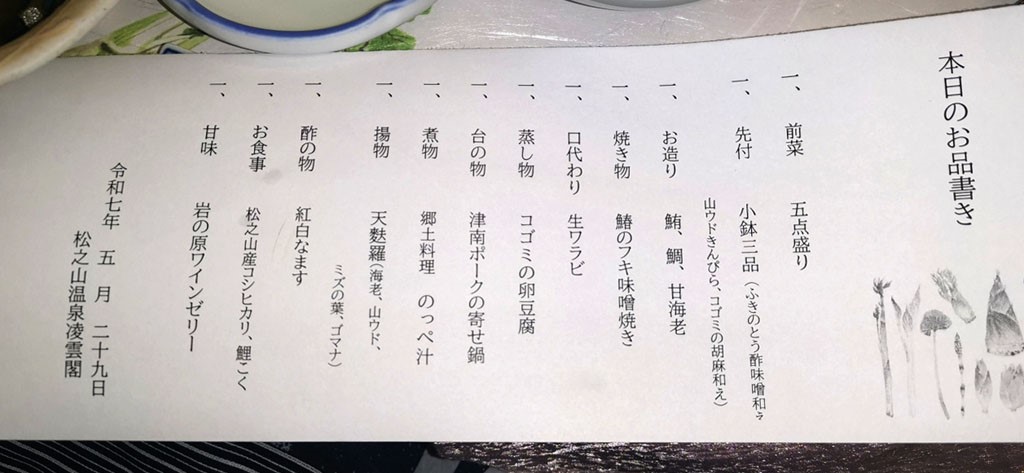 本日のお品書き
一、 前菜 五点盛り
一、 先付 小鉢三品（ふきのとう酢味噌和え
山ウドきんぴら、コゴミの胡麻和え）
一、 お造り 鮪、鯛、甘海老
一、 焼き物 鰆のフキ味噌焼き
一、 口代わり 生ワラビ
一、 蒸し物 コゴミの卵豆腐
一、 台の物 津南ポークの寄せ鍋
一、 煮物 郷土料理 のっぺ汁
一、 揚物 天麩羅（海老、山ウド、
ミズの葉、ゴマナ）
一、 酢の物 紅白なます
一、 お食事 松之山産コシヒカリ、鯉こく
一、 甘味 岩の原ワインゼリー
令和七年 五月 二十九日
松之山温泉凌雲閣